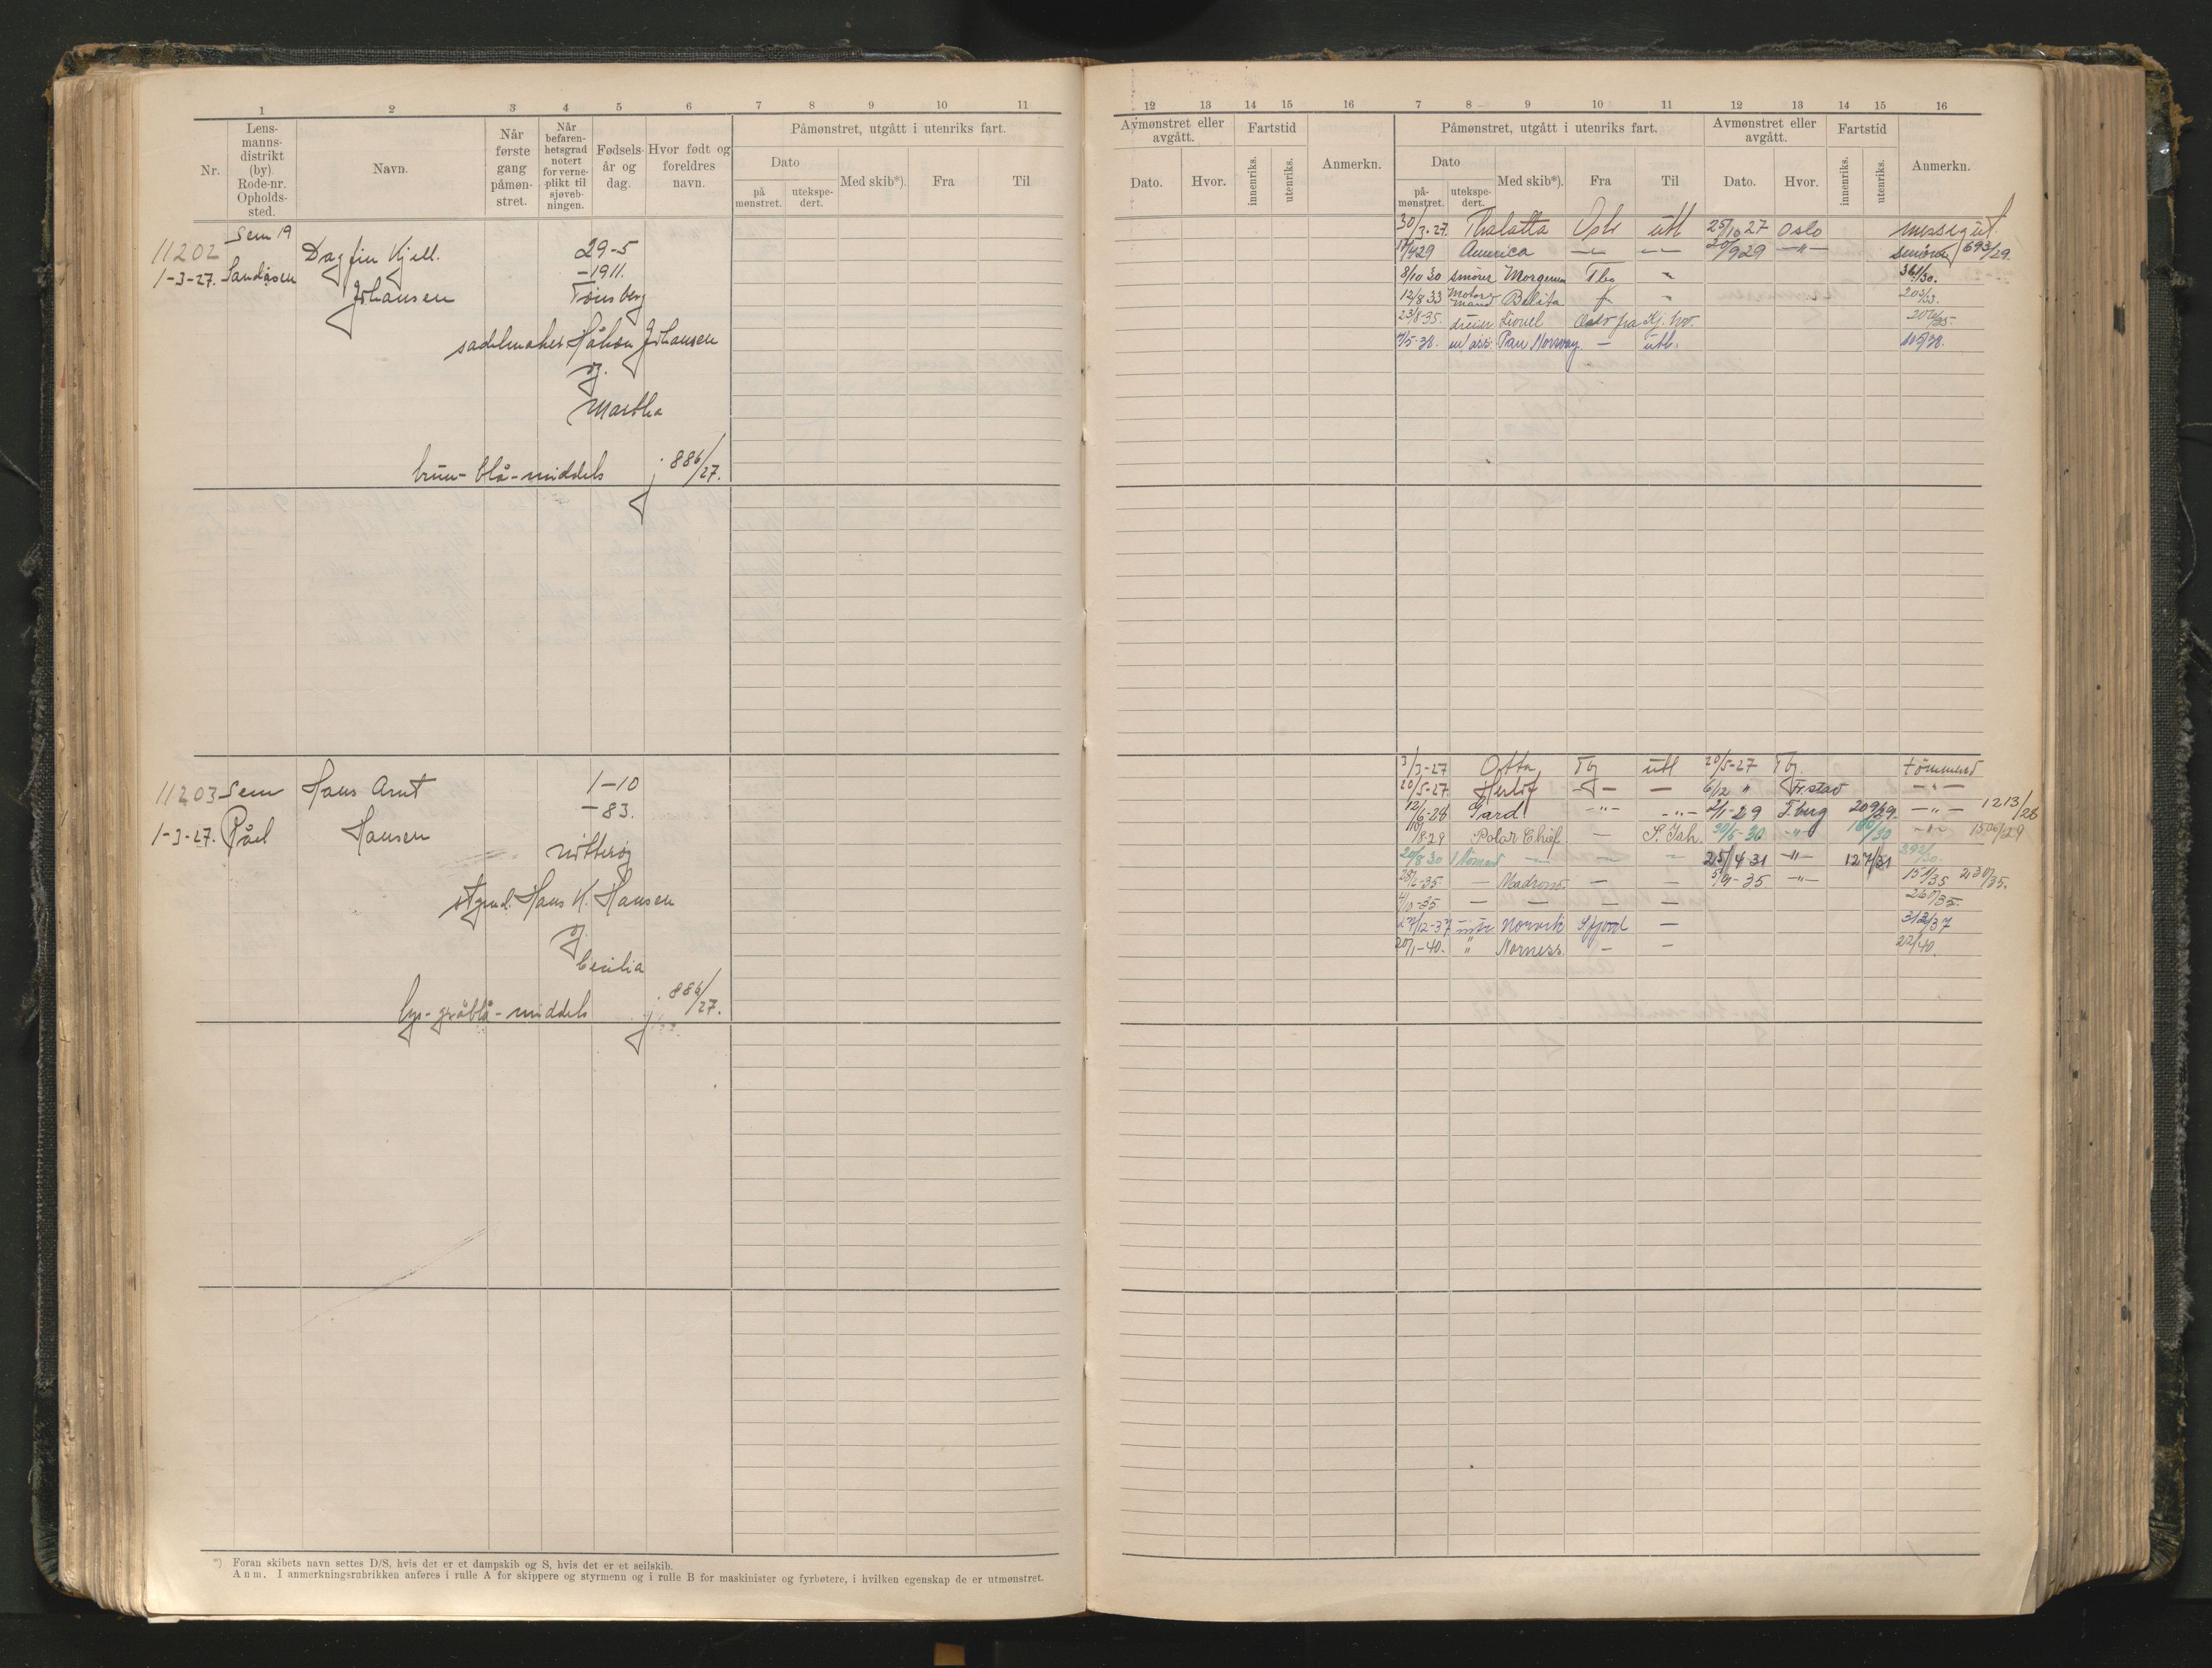 1 2 3 4 5 6 7 8 9 10 11
Nr.
Lens-
manns-
distrikt
(by)
Rode-nr.
Opholds-
sted.
Navn.
Når
første
gang
påmøn-
stret.
Når
befaren-
hetsgrad
notert
for verne-
plikt til
sjøveb-
ningen.
Fødsels-
år og
dag.
Hvor født og
foreldres
navn.
Påmønstret, utgått i utenriks fart.
Dato
på
mønstret.
utekspe-
dert.
Med skib*).
Fra
Til
Sem 19
11202 Dagfin Kjell. 29-5
1-3-27. Sandåsen -1911.
Johansen Tønsberg
sadelmaker Håkon Johansen
og
Martha
brun-blå-middels j 886/27.
11203 Sem Hans Arnt 1-10
-83.
1-3-27. Råel Hansen
Nøtterøy
styrmd. Hans K. Hansen
og
Cecilia
lys-gråblå-middels j 886/27.
*) Foran skibets navn settes D/S, hvis det er et dampskib og S, hvis det er et seilskib.
Anm. I anmerkningsrubrikken anføres i rulle A for skippere og styrmenn og i rulle B for maskinister og fyrbøtere, i hvilken egenskap de er utmønstret.
12 13 14 15 16 7 8 9 10 11 12 13 14 15 16
Avmønstret eller
avgått.
Dato.
Hvor.
Fartstid
innenriks.
utenriks.
Anmerkn.
Påmønstret, utgått i utenriks fart.
Dato
på-
mønstret.
utekspe-
dert.
Med skib*).
Fra
Til
Avmønstret eller
avgått.
Dato.
Hvor.
Fartstid
innenriks.
utenriks.
Anmerkn.
30/3-27. Thalatta Oslo utl 25/10 27 Oslo messegut.
17/4 29 America — — 20/9 29 -"- smører 693/29.
8/10 30 smører Morgenen Tbg " 361/30.
12/8 33 Motor-
mand Belita " 203/33.
23/8-35. Lionel Oslo fra Kj. hv. 202/35.
5-38. m/ass. Pan Norway — utl. 105/38.
3/3-27 Otta Tbg utl 20/5-27 Tbg. tømmerd
20/5-27 Herlof — — 6/12 " Fr.stad -"-
12/6-28 Gard -"- -"- 2/1-29 T.berg 209/29. -"- 1213/28
/8-29 Polar Chief — S. Ish. 30/5-30 -"- 180/30 -"- 1506/29
20/8 30 — — " 25/4 31 -"- 127/31 392/30.
28/2-35. — Madrono — — 5/9-35 -"- 151/35 230/35.
4/10-35. — — — — 260/35.
27/12-37 Norvik Sfjord — 312/37
20/1-40. " Norness — — 22/40.